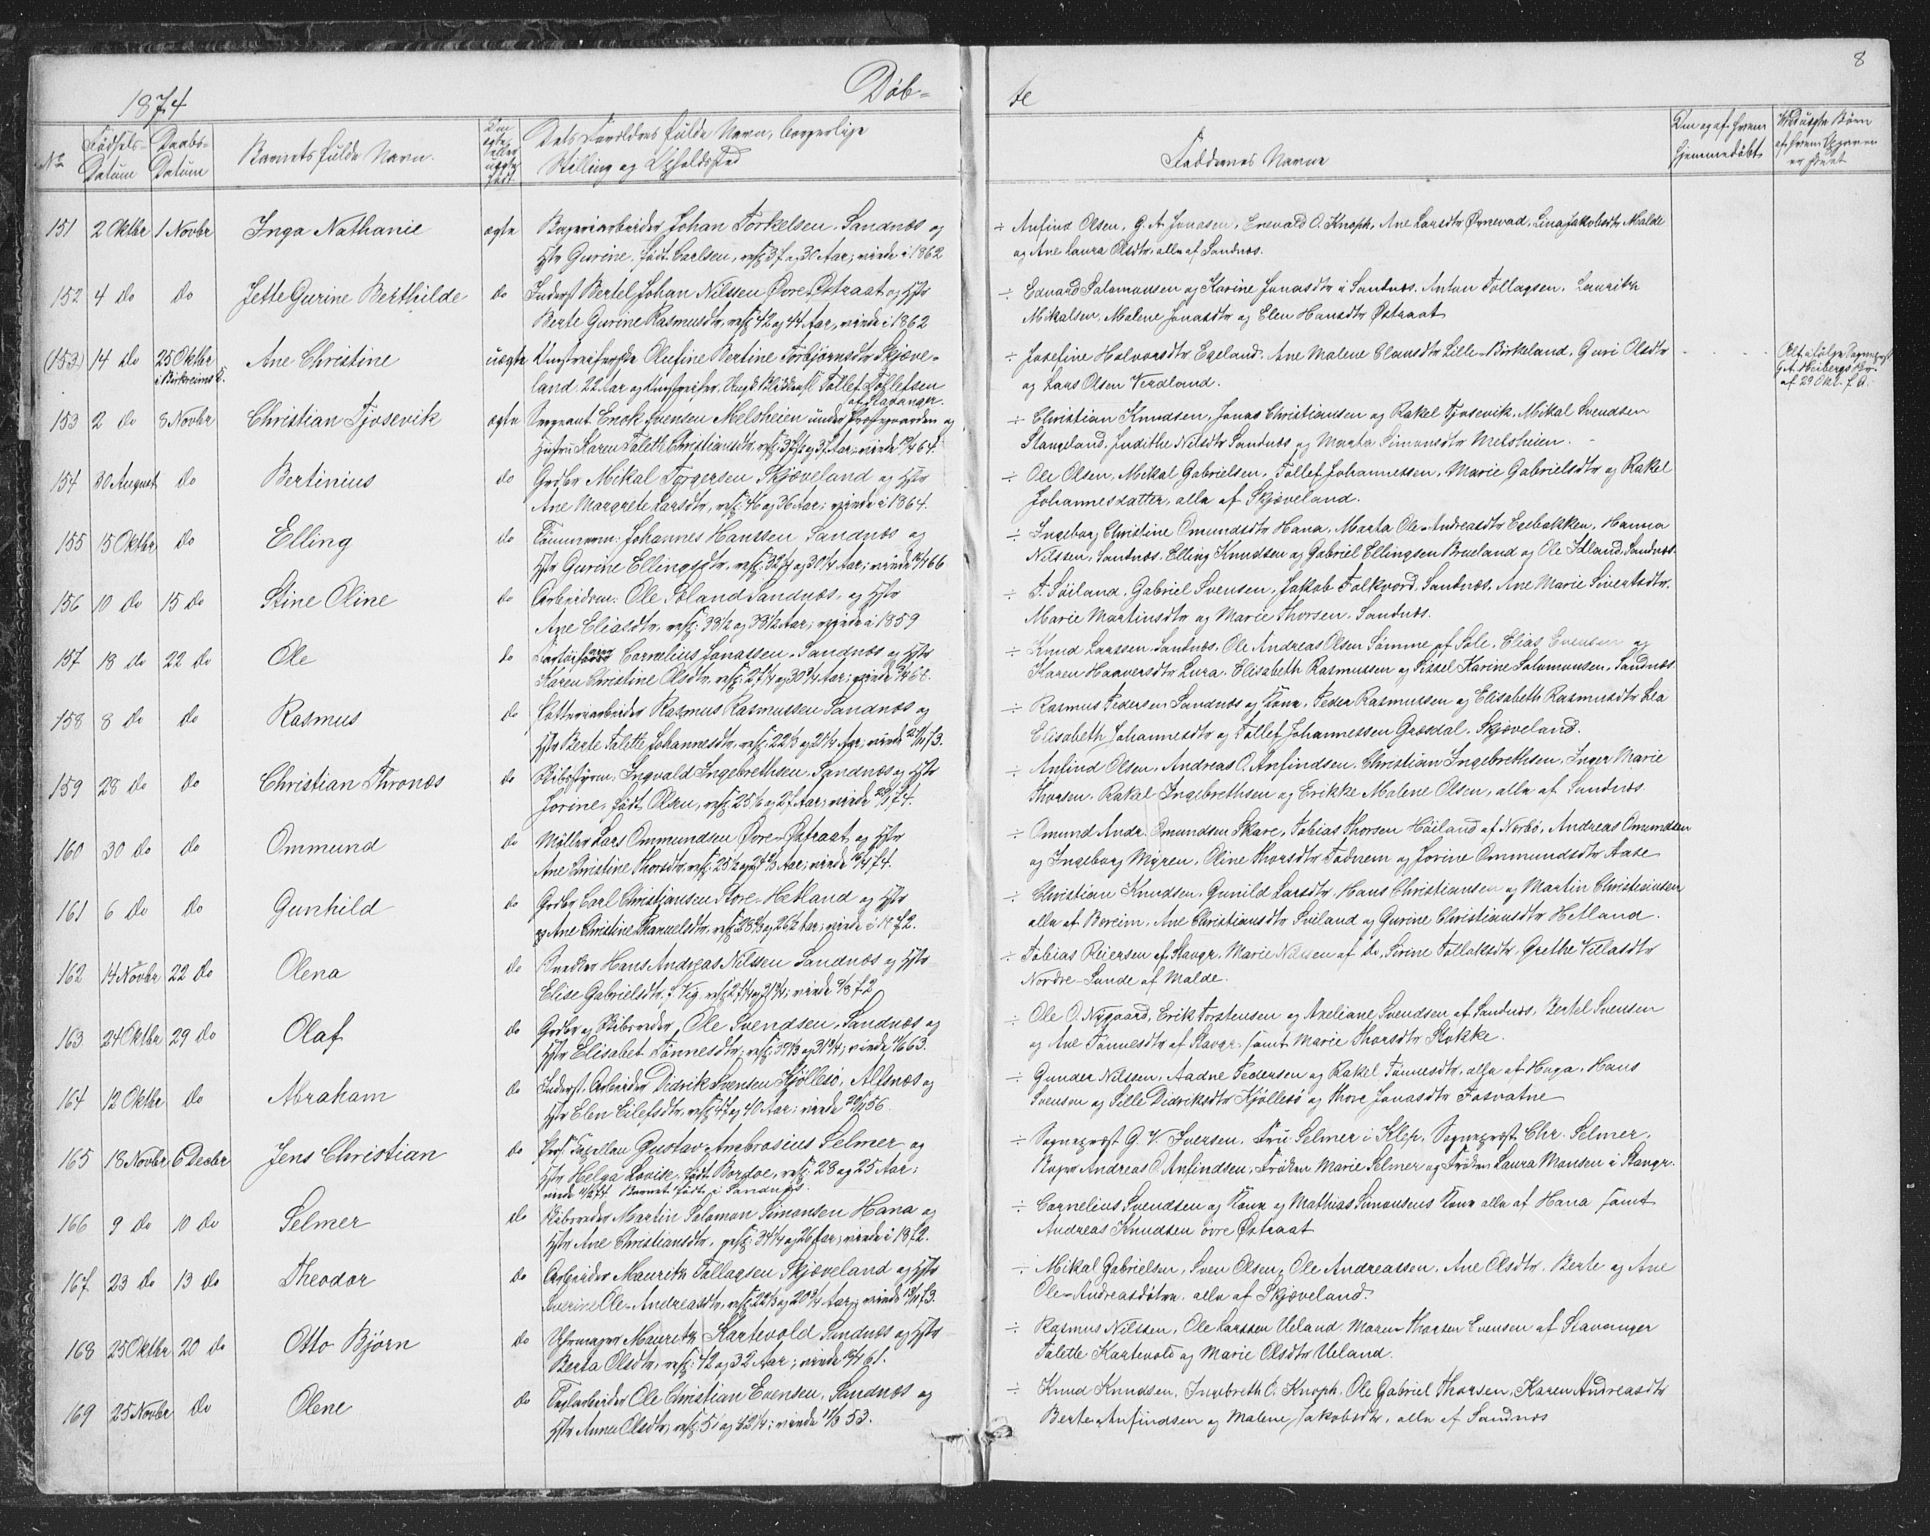 8
1874
Døb-
te
No
Fødsels-
Datum
Daabs-
Datum
Barnets fulde Navn.
Om ægte eller uægte født.
Dets Forældres fulde Navn, borgerlige
Stilling og Opholdssted
Faddernes Navne
Om og af hvem
hjemmedøbt
151 2 Oktbr 1 Novbr Inga Nathanie ægte Bageriarbeider Johan Torkelsen, Sandnæs og
Hstr Gurine, født Carlsen, resp. 37 og 30 Aar; viede i 1862
÷ Anfind Olsen, G. A. Jonasen, Enevald O. Knoph, Ane Larsdtr Ørnevad, Lina Jakobsdtr Malde
og Ane Laura Olsdtr, alle af Sandnæs.
152 4 do do Jette Gurine Berthilde do Inderst Bertel Johan Nilssen Øvre-Østraat og Hstr
Berte Gurine Rasmusdtr, resp. 42 og 44 Aar, viede i 1862
÷ Edvard Salamonsen og Karine Jonasdtr i Sandnæs, Anton Tollagsen, Lauritz
Mikalsen, Malene Jonasdtr og Elen Hansdtr Østraat
(153) 14 do 25 Oktbr i Birkreims K. Ane Christine uægte Olufine Bertine Torbjørnsdtr Skjæve-
land, 22 Aar og Tollef Tollefsen
af Stavanger.
÷ Josefine Halvorsdtr Egeland, Ane Malene Clausdtr Lille-Birkeland, Guri Olsdtr
og Lars Olsen Verdland.
153 2 do 8 Novbr Christian Tjosevik ægte Sergeant Enok Svensen Melsheien under Præstegaarden og
Hustru Karen Talette Christiansdtr,
÷ Christian Knudsen, Jonas Christiansen og Rakel Tjosevik, Mikal Svendsen
Stangeland, Judithe Nilsdtr Sandnæs og Marta Simonsdtr Melsheien.
154 30 August do Bertinius do Grdbr Mikal Torgersen Skjæveland og Hstr
Ane Margrete Larsdtr, resp. 46 og 36 Aar; viede i 1864.
÷ Ole Olsen, Mikal Gabrielsen, Tollef Johannessen, Marie Gabrielsdtr og Rakel
Johannesdatter, alle af Skjæveland.
155 15 Oktbr do Elling do Tømmerm: Johannes Hanssen Sandnæs og
Hstr Gurine Ellingsdtr, resp. 32¼ og 30¼ Aar; viede
÷ Ingeborg Christine Omundsdtr Hana, Marta Ole-Andreasdtr Egebakken, Hanna
Nilssen, Sandnæs, Elling Knudsen og Gabriel Ellingsen Brueland og Ole Idland, Sandnæs.
156 10 do 15 do Stine Oline do Arbeidsm: Ole Soland Sandnæs, og Hstr
Ane Eliasdtr, resp: 33½ og 38½ Aar; viede i 1859
÷ T. Søiland, Gabriel Svensen, Jakob Folkvord, Sandnæs, Ane Marie Sivertsdtr,
Marie Martinsdtr og Marie Thorsen, Sandnæs.
157 18 do 22 do Ole do Cornelius Jonassen, Sandnæs og Hstr
Karen Christine Olsdtr,
÷ Knud Larssen, Sandnæs, Ole Andreas Olsen Sømme af Sole, Elias Evensen og
Karen Haaversdtr Lura, Elisabeth Rasmussen og Sissel Karine Salamonsen, Sandnæs
158 8 do do Rasmus do Potteriarbeider Rasmus Rasmussen Sandnæs og
Hstr Berte Talette Johannesdtr,
÷ Rasmus Pedersen Sandnæs og Kone, Peder Rasmussen og Elisabeth Rasmusdtr Lea
Elisabeth Johannesdtr og Tollef Johannessen Grasdal, Skjæveland.
159 28 do do Christian Thronæs do Skibsstyrm: Ingvald Ingebrethsen, Sandnæs og Hstr
Jorine, født Olsen,
÷ Anfind Olsen, Andreas O. Anfindsen, Christian Ingebrethsen, Inger Marie
Thorsen, Rakel Ingebrethsen og Erikke Malene Olsen, alle af Sandnæs
160 30 do do Ommund do Møller Lars Ommundsen Øvre-Østraat og Hstr
Ane Christine Thorsdtr,
÷ Omund Andr. Omundsen Skare, Tobias Thorsen Høiland af Norbø, Andreas Omundsen
og Ingeborg Myren, Oline Thorsdtr Fodnem og Jorine Ommundsdtr Aase
161 6 do do Gunhild do Grdbr Carl Christiansen Store-Hetland og Hstr
Ane Christine Thanuelsdtr,
÷ Christian Knudsen, Gunild Larsdtr, Hans Christiansen og Martin Christensen
alle af Boreim, Ane Christiansdtr Sviland og Gurine Christiansdtr Hetland.
162 14 Novbr 22 do Olena do Snedker Hans Andreas Nilssen Sandnæs og Hstr
Elise Gabrielsdtr f. Vig,
÷ Tobias Reiersen af Stavgr, Marie Nilssen af do, Serine Tollaksdtr, Grethe Villasdtr
Nordre-Sunde af Malde.
163 24 Oktbr 29 do Olaf do Grdbr og Skibsreder Ole Svendsen, Sandnæs og
Hstr Elisabet Tønnesdtr,
÷ Ole O. Nygaard, Erik Torstensen og Axeliane Svendsen af Sandnæs, Bertel Svensen
og Ane Tønnesdtr af Stavgr, samt Marie Thorsdtr Stokke.
164 12 Oktbr do Abraham do Inderst. Arbeider Didrik Svensen Kjøllesø, Altsnæs og
Hstr Elen Eilefsdtr, resp. 47 og 40 Aar; viede
÷ Gunder Nilssen, Aadne Pedersen og Rakel Tønnesdtr, alle af Haga, Hans
Svensen og Sille Didriksdtr Kjøllesø og Thore Jonasdtr Fosvatne
165 18 Novbr 6 Decbr Jens Christian do Pers. Capellan Gustav Ambrosius Selmer og
Hstr Helga Lovise, født Bordoe, resp. 28 og 25 Aar;
viede Barnet født i Sandnæs.
÷ Sognepræst G. V. Iversen, Fru Selmer i Klep, Sognepræst Chr. Selmer,
Kapt Andreas O. Anfindsen, Frøken Marie Selmer og Frøken Laura Monsen i Stavgr.
166 9 do 10 do Selmer do Skibsreder Martin Salamon Simonsen Hana og
Hstr Ane Christiansdtr, viede i 1872.
÷ Cornelius Svendsen og Kone og Mathias Simonsens Kone alle af Hana samt
Andreas Knudsen øvre Østraat
167 23 do 13 do Theodor do Arbeider Mauritz Tollagsen Skjæveland og Hstr
Severine Ole-Andreasdtr,
÷ Mikal Gabrielsen, Sven Olsen, Ole Andreassen, Ane Olsdtr, Berte og Ane
Ole-Andreasdøtre, alle af Skjæveland.
168 25 Oktbr 20 do Otto Bjørn do Uhrmager Mauritz Kartevold Sandnæs og Hstr
Berta Olsdtr, resp: 42 og 32 Aar; viede
÷ Rasmus Nilssen, Ole Larssen Ueland, Maren Thorsen Svensen af Stavanger
Talette Kartevold og Marie Olsdtr Ueland.
169 25 Novbr do Olene do Teglarbeider Ole Christian Evensen, Sandnæs og
Hstr Anna Olsdtr,
÷ Knud Knudsen, Ingebreth E. Knoph, Ole Gabriel Thorsen, Karen Andreasdtr
Berte Anfindsen og Malene Jakobsdtr, alle af Sandnæs